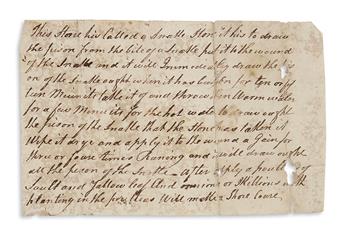 This Stone his Called a Snake Stone it his to draw
the pison from the bite of a Snake put it to the wound
of the Snake and it will Immedicatly draw the pis
on of the Snake ought when it has ben on for ten or for
teen Menuits take it of and throw in Warm water
for a few Menuits for the hot water to draw ought
the pison of the Snake that the Stone has taken it
Wipe it drye and apply it to the Wound a Gain for
three or foure times Runing and will draw ought
all the pison of the Snake after apply a poultis of
Sault and Yallow leaf and onions or
planting in the Will make a Shore Cure